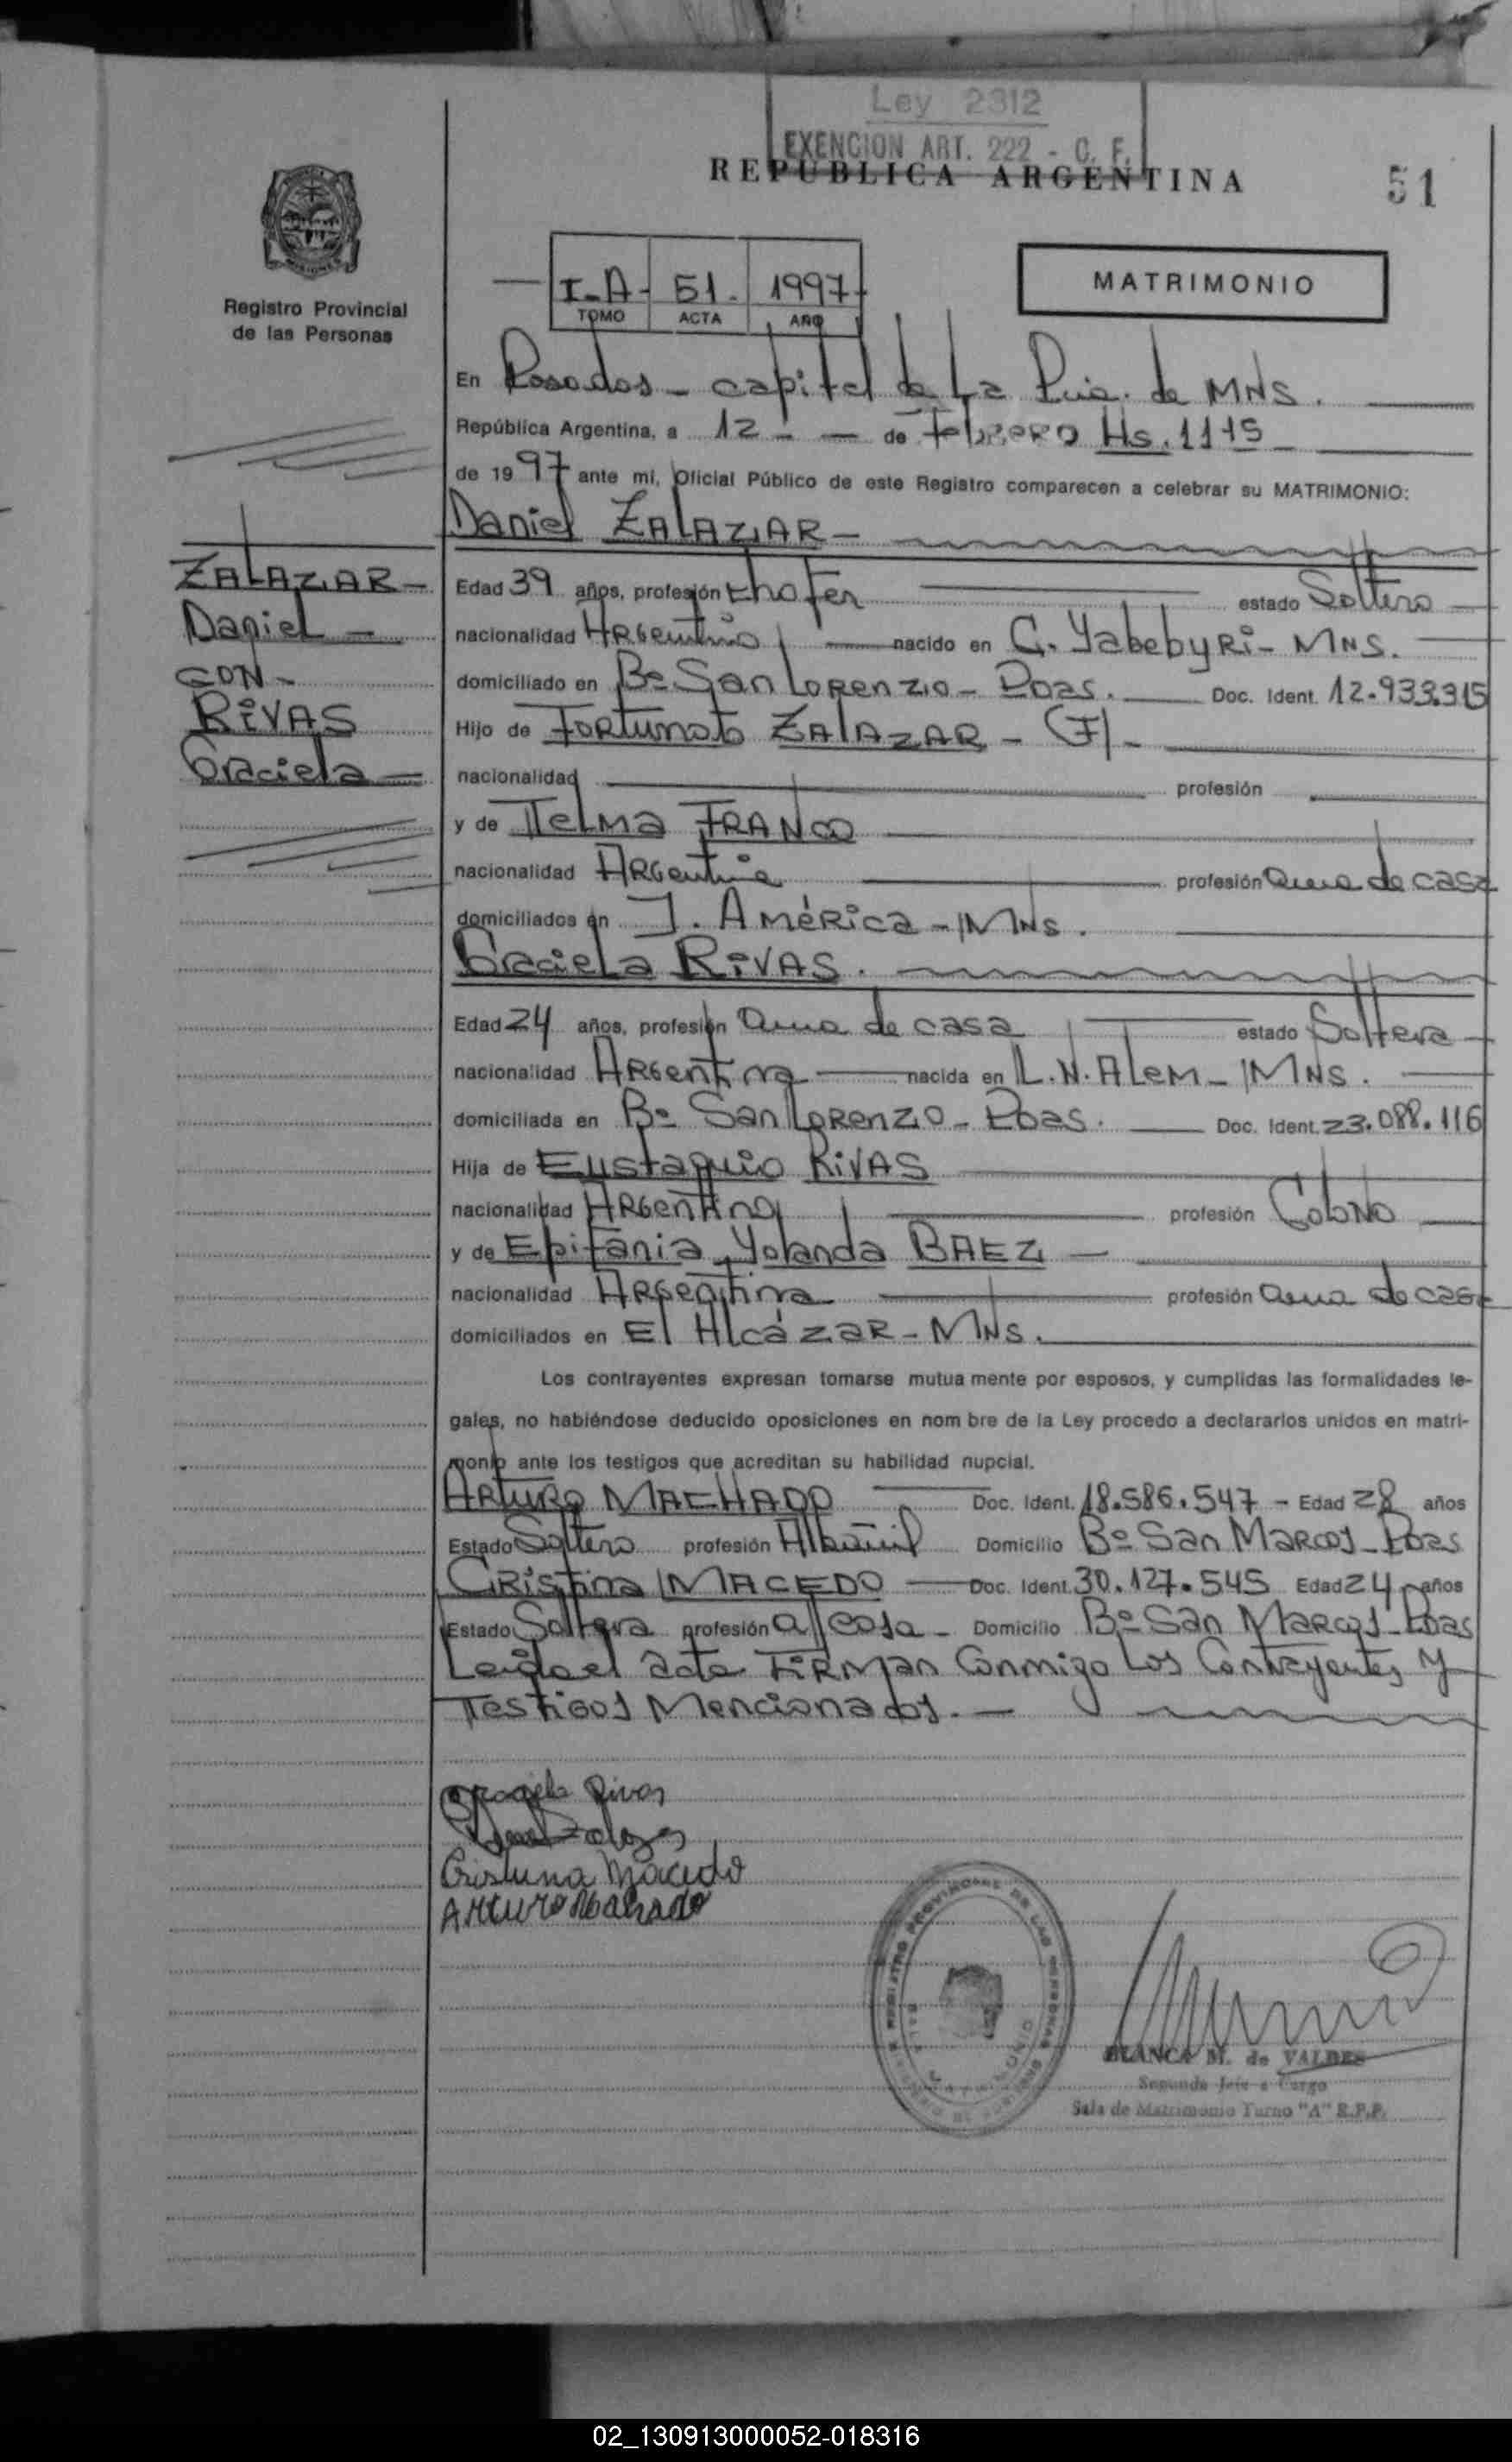 Ley 2312
EXENCION ART. 222 - C. F.
REPUBLICA ARGENTINA
51
Registro Provincial
de las Personas
I-A- 51. 1997
TOMO ACTA AÑO
MATRIMONIO
En Posadas - capital de La Pcia. de MNS.
República Argentina, a 12 - de Febrero Hs. 1115
de 1997 ante mi, Oficial Público de este Registro comparecen a celebrar su MATRIMONIO:
Daniel ZALAZAR -
ZALAZAR -
Daniel -
CON -
RIVAS
Graciela -
Edad 39 años, profesión chofer estado Soltero
nacionalidad Argentino nacido en C. Yabebyri - MNS.
domiciliado en Bº San Lorenzo - Pdas. Doc. Ident. 12.933.315
Hijo de Fortunato ZALAZAR - (F) -
nacionalidad profesión
y de Telma FRANCO
nacionalidad Argentina profesión ama de casa
domiciliados en J. América - MNS.
Graciela RIVAS.
Edad 24 años, profesión ama de casa estado Soltera
nacionalidad Argentina nacida en L.N. Alem - MNS.
domiciliada en Bº San Lorenzo - Pdas. Doc. Ident. 23.088.116
Hija de Eustaquio RIVAS
nacionalidad Argentino profesión Colono
y de Epifania Yolanda BAEZ -
nacionalidad Argentina profesión ama de casa
domiciliados en El Alcázar - MNS.
Los contrayentes expresan tomarse mutua mente por esposos, y cumplidas las formalidades le-
gales, no habiéndose deducido oposiciones en nom bre de la Ley procedo a declararlos unidos en matri-
monio ante los testigos que acreditan su habilidad nupcial.
Arturo MACHADO Doc. Ident. 18.586.547 - Edad 28 años
Estado Soltero profesión Albañil Domicilio Bº San Marcos - Pdas
Cristina MACEDO Doc. Ident. 30.127.545 Edad 24 años
Estado Soltera profesión a/casa - Domicilio Bº San Marcos - Pdas
Leida el acta Firman Conmigo Los Contrayentes y
Testigos Mencionados. -
Graciela Rivas
Cristina Macedo
Arturo Machado
BLANCA M. de VALDES
Segundo Jefe a Cargo
Sala de Matrimonio Turno "A" R.P.P.
02_130913000052-018316